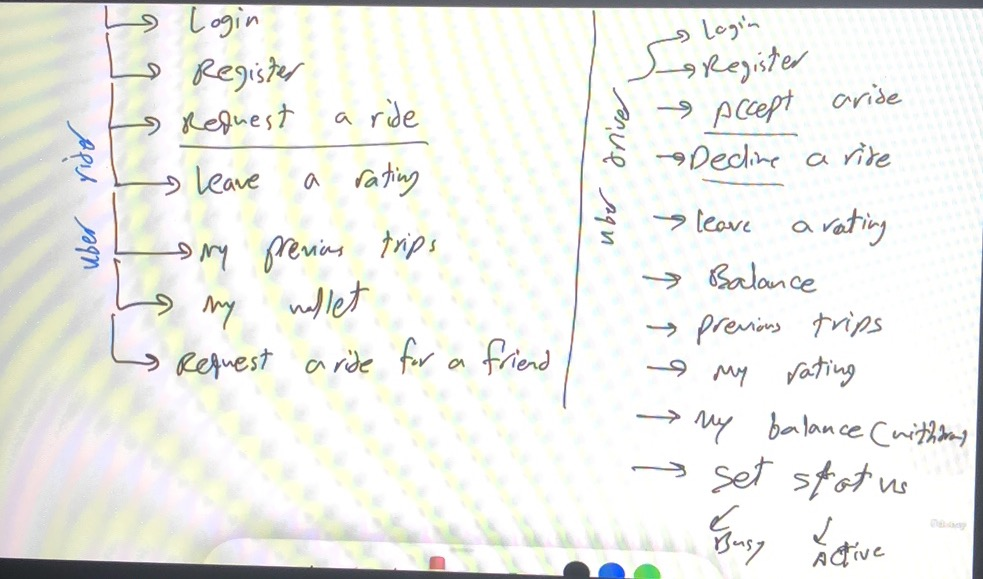 Login
Register
Request a ride
leave a rating
My previous trips
My wallet
Request a ride for a friend
uber rider
Login
Register
Accept a ride
Decline a ride
leave a rating
Balance
previous trips
My rating
My balance (withdraw
set status
Busy
Active
uber driver